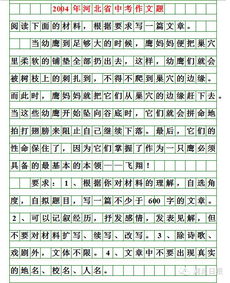 2004年河北省中考作文题
阅读下面的材料，根据要求写一篇文章。
当幼鹰到足够大的时候，鹰妈妈便把巢穴
里柔软的铺垫全部扔出去，这样，幼鹰们就会
被树枝上的刺扎到，不得不爬到巢穴的边缘。
而此时，鹰妈妈就把它们从巢穴的边缘赶下去。
当这些幼鹰开始坠向谷底时，它们就会拼命地
拍打翅膀来阻止自己继续下落。最后，它们的
性命保住了，因为它们掌握了作为一只鹰必须
具备的最基本的本领——飞翔！
要求：1、根据你对材料的理解，自选角
度，自拟题目，写一篇不少于 600 字的文章。
2、可以记叙经历，抒发感情，发表见解，但
不要对材料扩写、续写、改写。3、除诗歌、
戏剧外，文体不限。4、文章中不要出现真实
的地名、校名、人名。